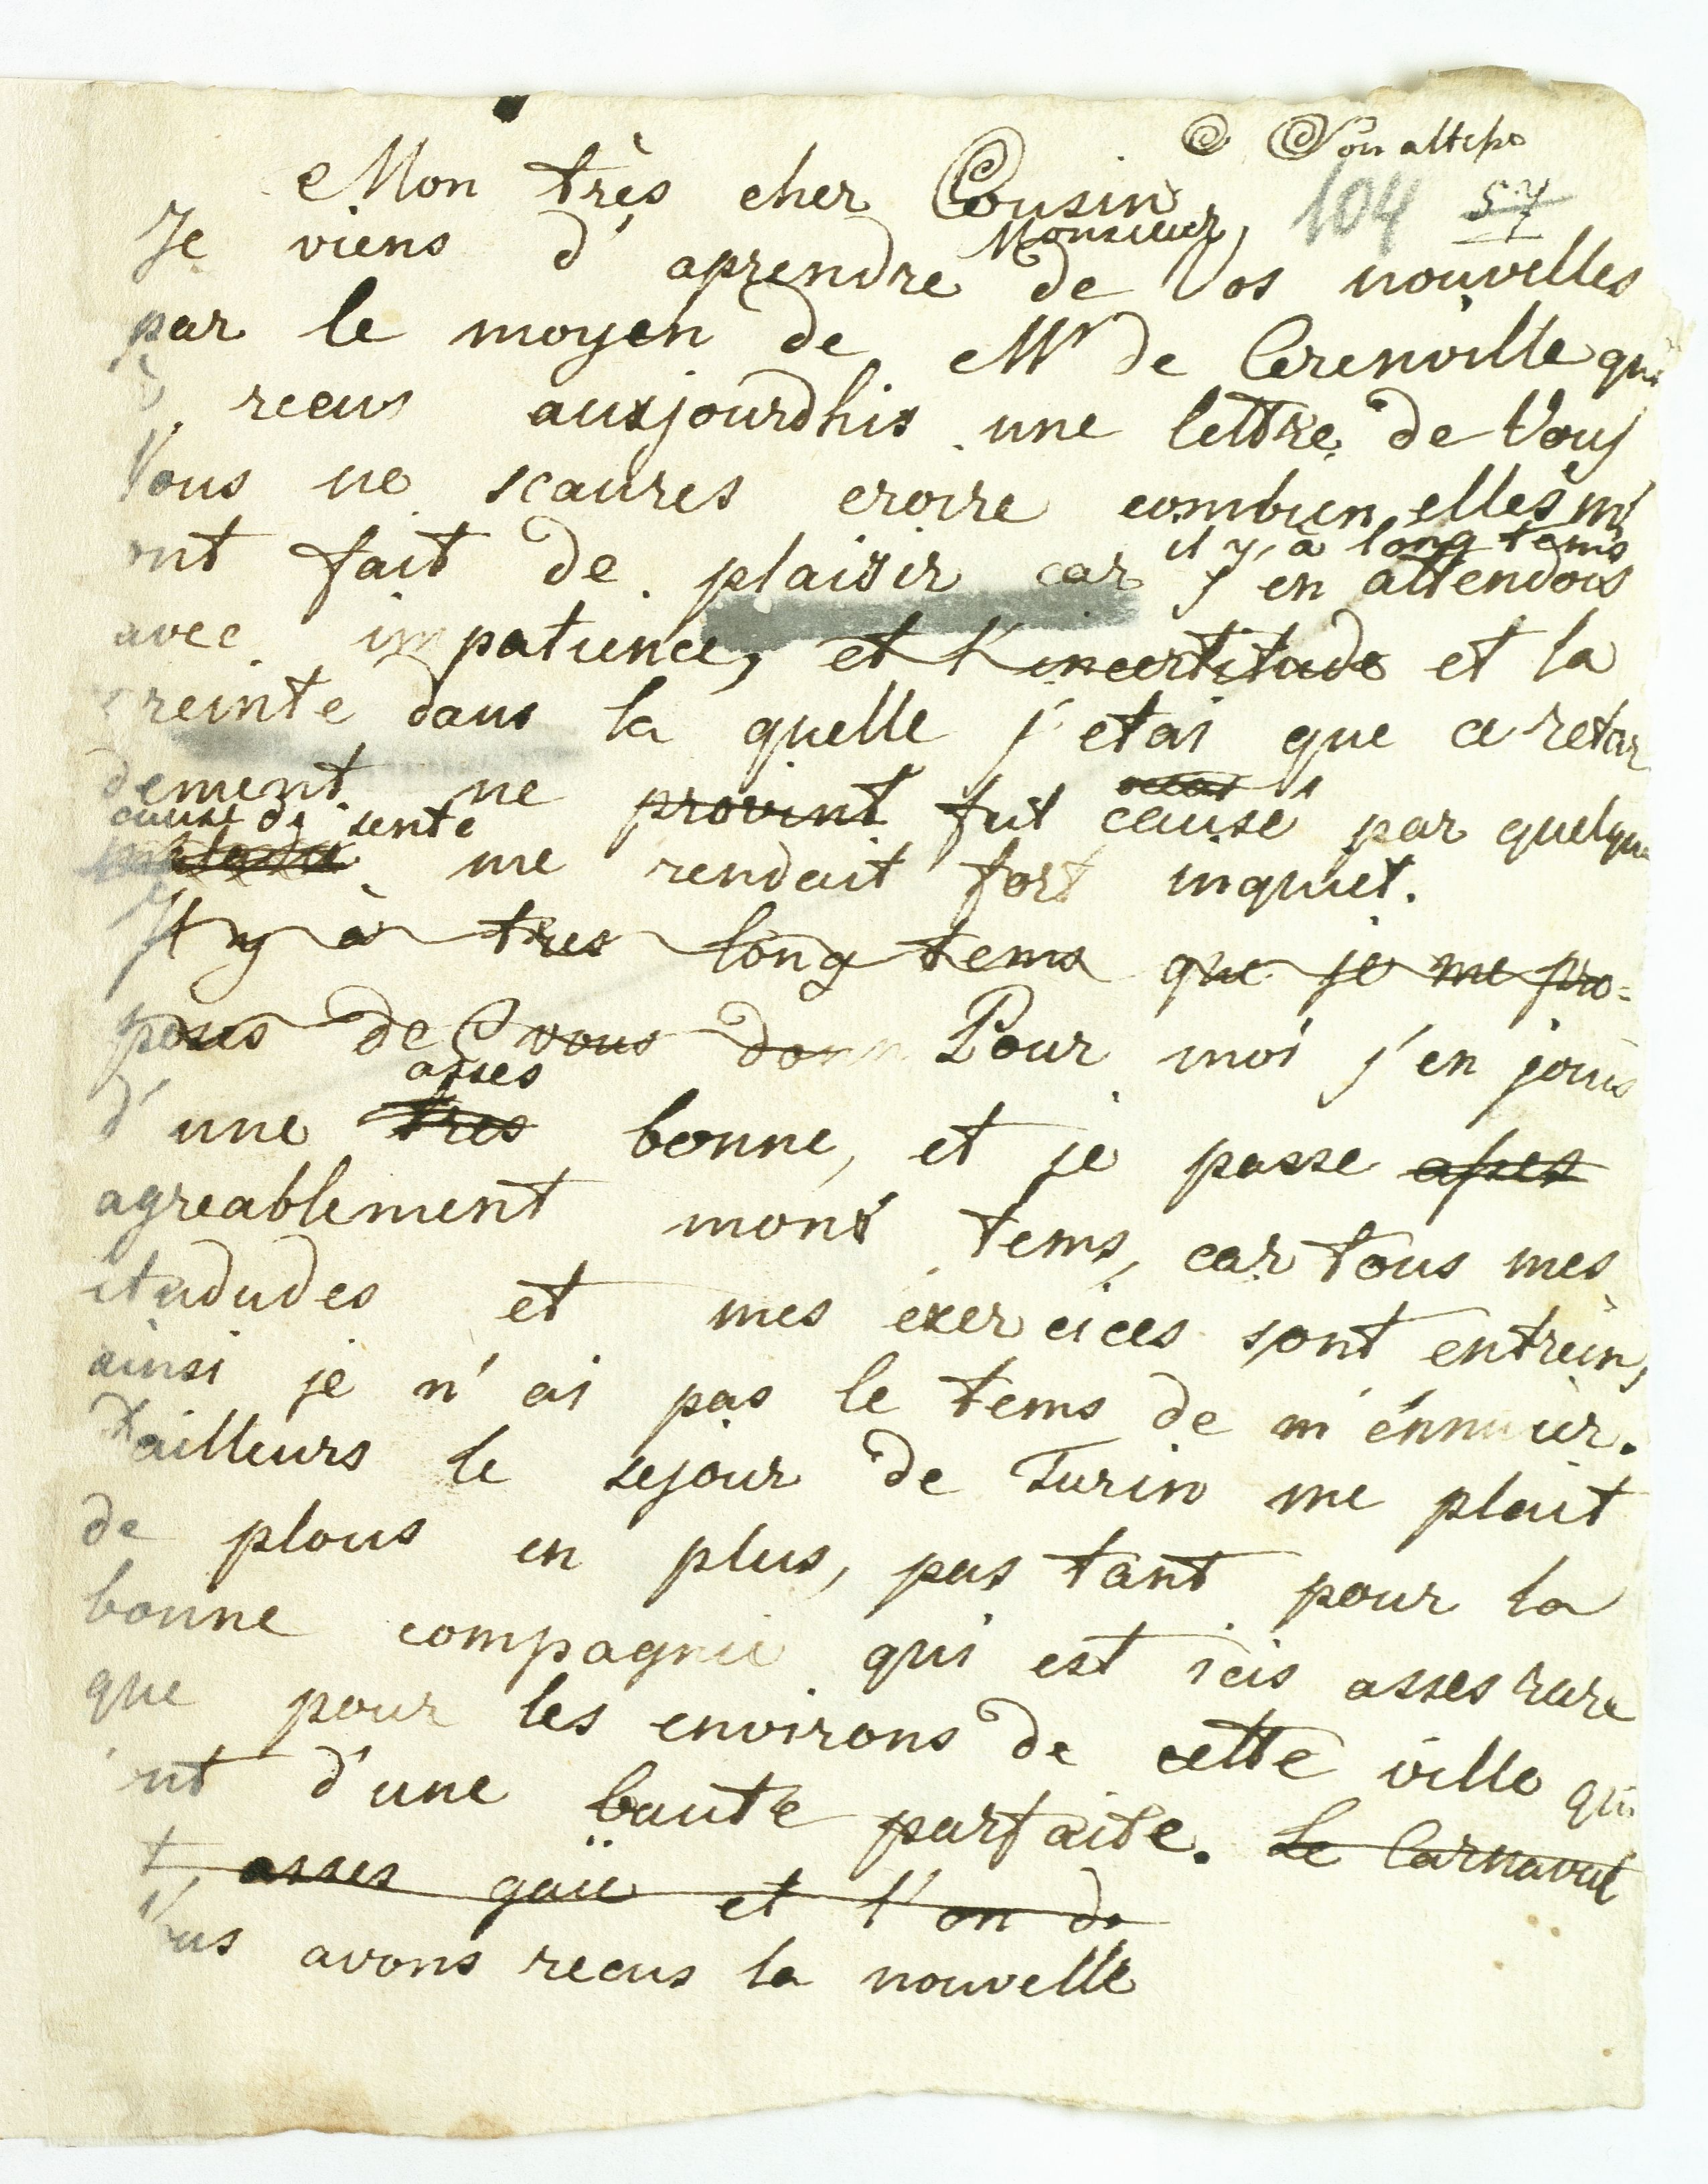 Son altesse
Mon très cher Cousin,
104 57
Monsieur,
Je viens d' aprendre de Vos nouvelles
par le moyen de Mr de Cerenville qui
recus auxjourdhis une lettre de Vous
Vous ne scaures croire combien elles m'
ont fait de plaisir car j' en attendois
il y, a long tems
avec impatience, et l'incertitude et la
creinte dans la quelle j' etai que ce retar
dement ne provint fut causé par quelque
cause de sente
maladie me rendait fort inquiet.
Il y à tres long tems que je me pro=
posus de vous donn Pour moi j'en jouis
asses
d' une tres bonne, et je passe asses
agreablement mont tems, car tous mes
etadudes et mes exercices sont entrein,
ainsi je n' ai pas le tems de m'énnuier.
Dailleurs le sejour de Turin me plait
de plous en plus, pas tant pour la
bonne compagnie qui est icis asses rare
que pour les environs de cette ville qui
nt d'une baute parfaite. Le Carnaval
t asses gaïe et l'on de
Nous avons recus la nouvelle